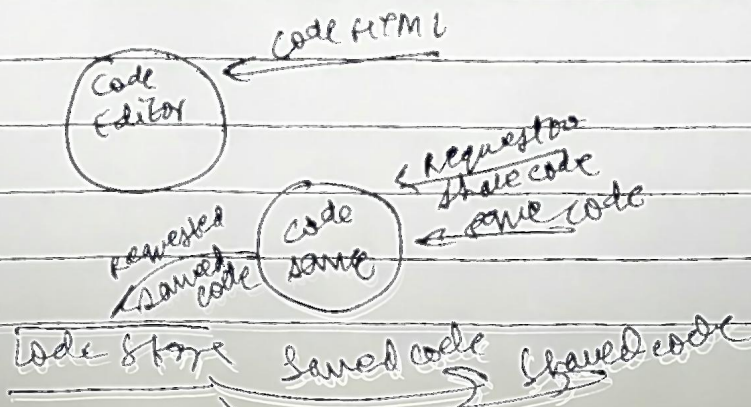 Code HTML
Code
Editor
Request to
share code
save code
Code
save
requested
saved
code
Code Store
Saved code
Shared code